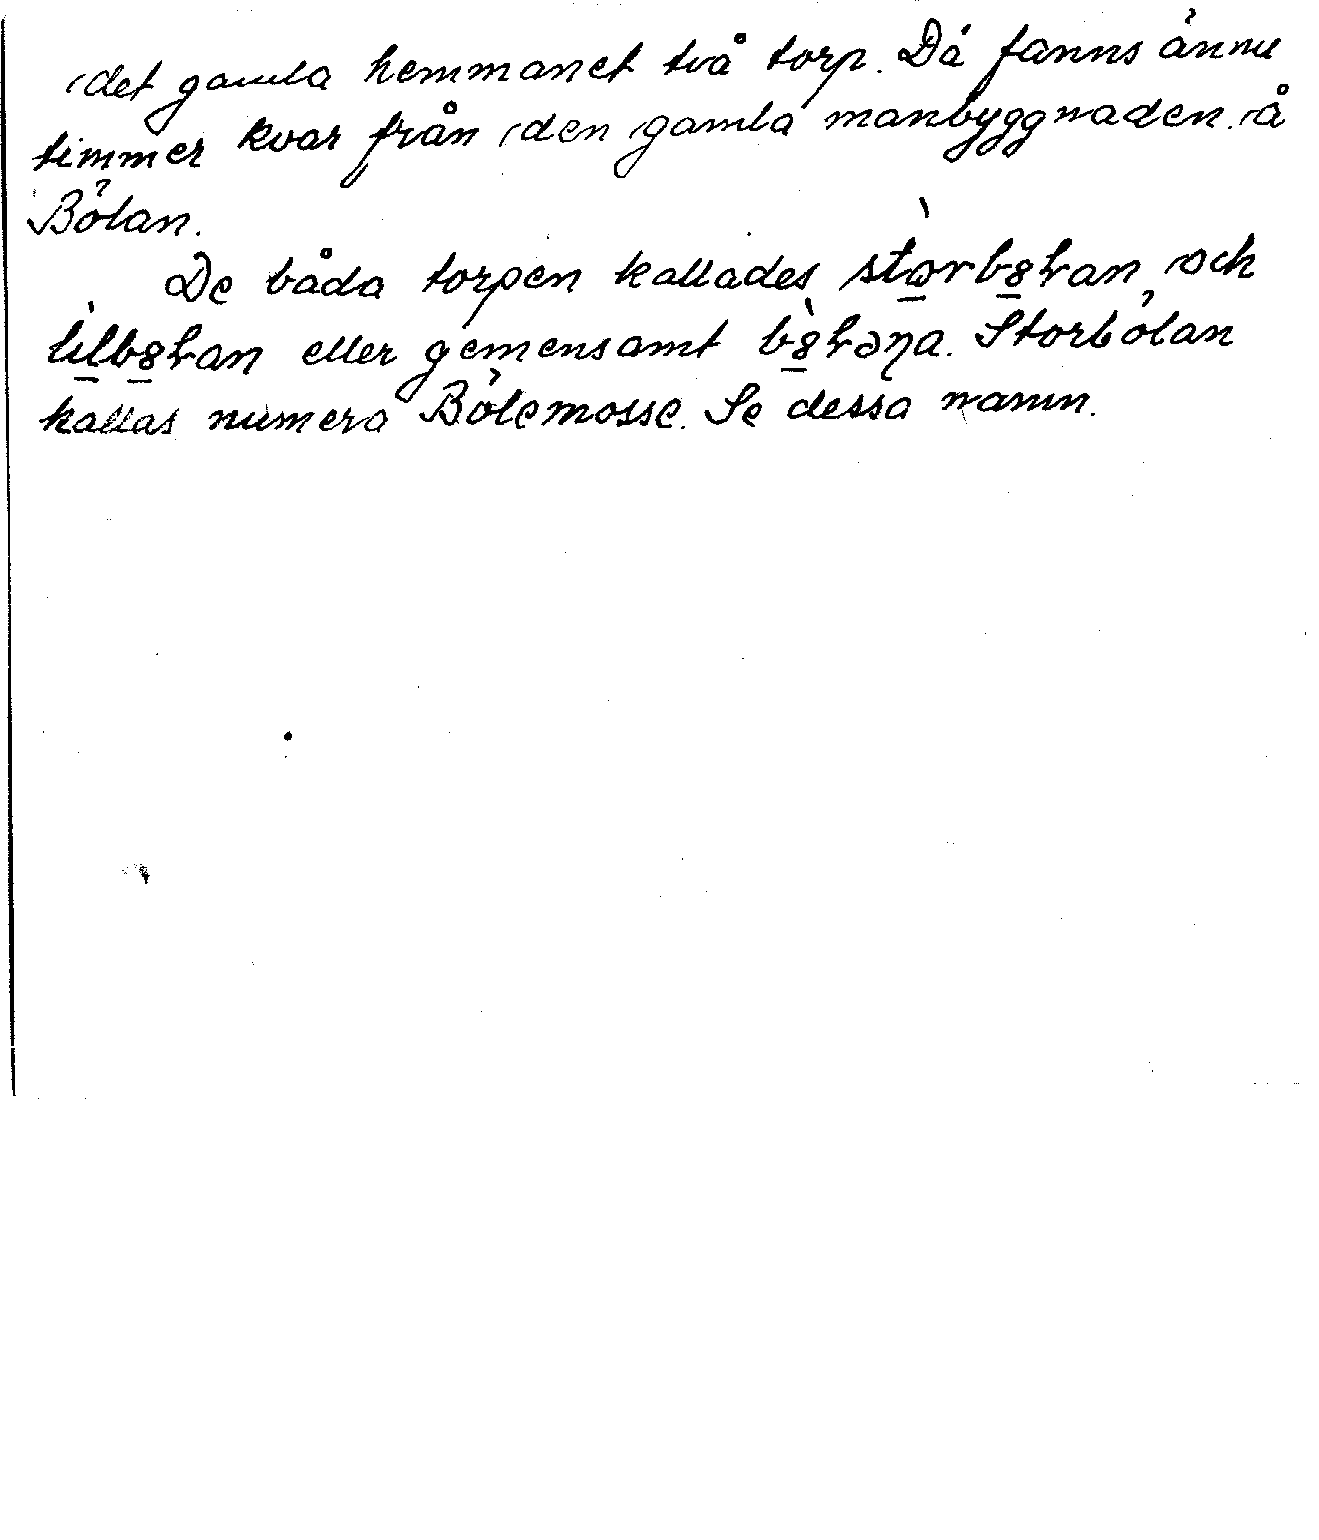 det gamla hemmanet två torp. Då fanns ännu
timmer kvar från den gamla manbyggnaden å
Bölan.
De båda torpen kallades och
eller gemensamt Storbölan
kallas numera Bölemosse. Se dessa namn.